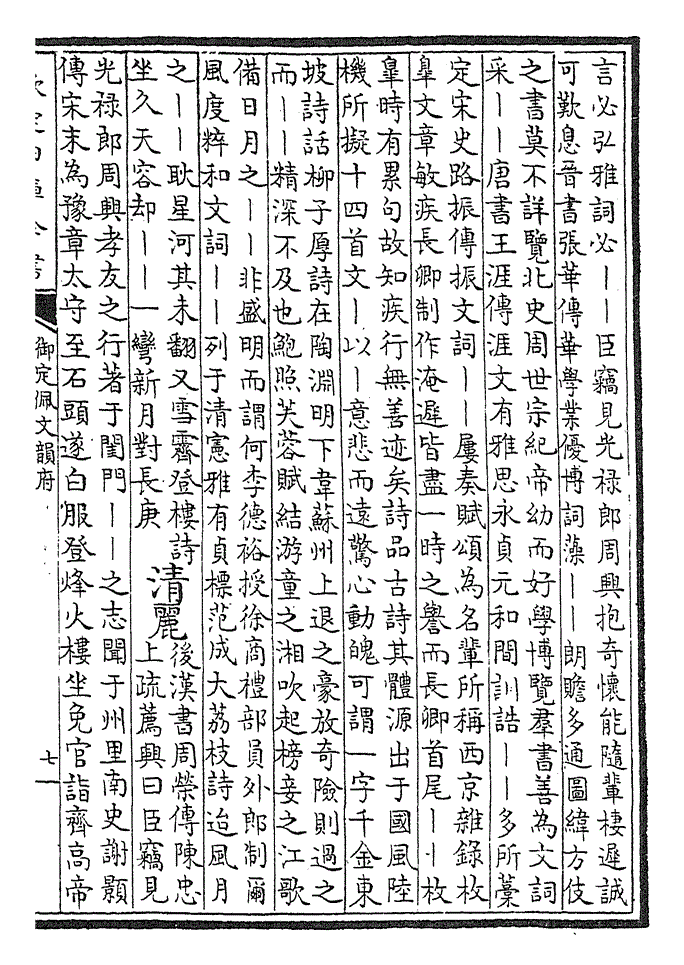 言必弘雅詞必——臣竊見光祿郎周興抱奇懷能隨輩棲遲誠
可歎息晉書張華傳華學業優博詞藻——朗贍多通圖緯方伎
之書莫不詳覽北史周世宗紀帝幼而好學博覽羣書善為文詞
采——唐書王涯傳涯文有雅思永貞元和間訓誥——多所藁
定宋史路振傳振文詞——屢奏賦頌為名輩所稱西京雜錄枚
臯文章敏疾長卿制作淹遲皆盡一時之譽而長卿首尾——枚
臯時有累句故知疾行無善迹矣詩品古詩其體源出于國風陸
機所擬十四首文—以—意悲而遠驚心動魄可謂一字千金東
坡詩話柳子厚詩在陶淵明下韋蘇州上退之豪放奇險則過之
而——精深不及也鮑照芙蓉賦結游童之湘吹起榜妾之江歌
備日月之——非盛明而謂何李德裕授徐商禮部員外郎制爾
風度粹和文詞——列于清憲雅有貞標范成大荔枝詩迨風月
之——耿星河其未翻又雪霽登樓詩
坐久天容却——一彎新月對長庚
清麗
後漢書周榮傳陳忠
上疏薦興曰臣竊見
光祿郎周興孝友之行著于閨門——之志聞于州里南史謝顥
傳宋末為豫章太守至石頭遂白服登烽火樓坐免官詣齊高帝
欽定四庫全書
御定佩文韻府
七